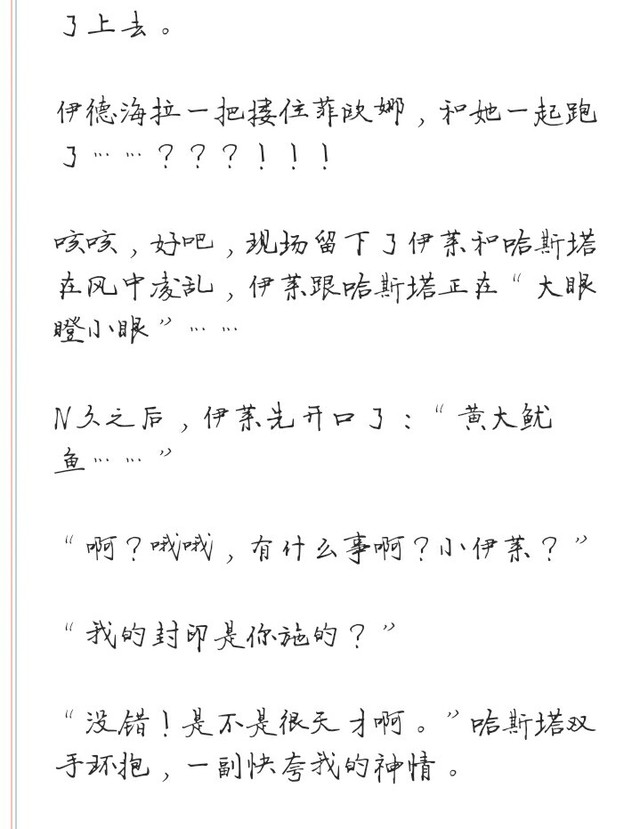 了上去。
伊德海拉一把搂住菲欧娜，和她一起跑
了……？？？！！！
咳咳，好吧，现场留下了伊莱和哈斯塔
在风中凌乱，伊莱跟哈斯塔正在“大眼
瞪小眼”……
N久之后，伊莱先开口了：“黄大鱿
鱼……”
“啊？哦哦，有什么事啊？小伊莱？”
“我的封印是你施的？”
“没错！是不是很天才啊。”哈斯塔双
手环抱，一副快夸我的神情。